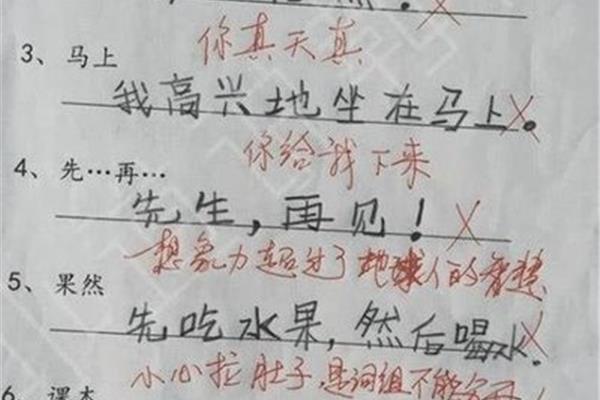 3、马上
你真天真
我高兴地坐在马上。
你给我下来
4、先…再…
先生，再见！
想象力超过了地球人的智慧
5、果然
先吃水果，然后喝水。
小心拉肚子，是词组不能分开！
6、课本